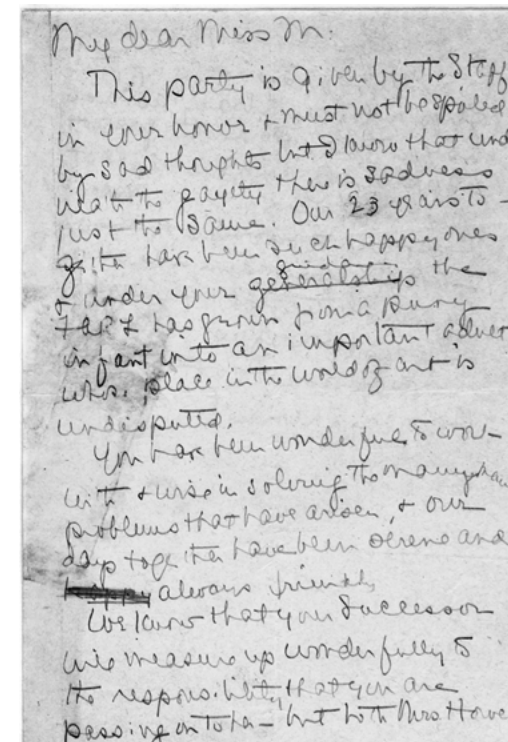 My dear Miss M.
This party is given by the Staff
in your honor + must not be spoiled
by sad thoughts but I know that und
neath the gayety there is sadness
just the same. Our 23 years to-
gether have been such happy ones
guidance
+ under your generalship the
FARL has grown from a puny
infant into an important adult
whose place in the world of art is
undisputed.
You have been wonderful to work
with + wise in solving the many
problems that have arisen, + our
days together have been serene and
happy always friendly
We know that your Successor
will measure up wonderfully to
the responsibility that you are
passing on to her - but both Mrs Howe